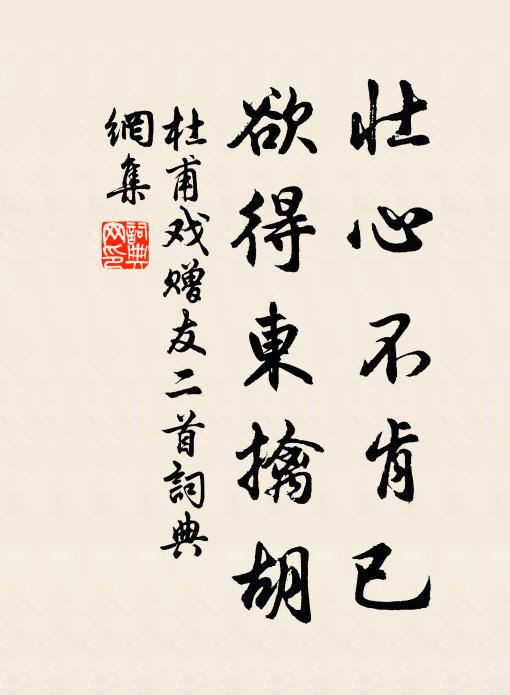 壮心不肯已
欲得東擒胡
杜甫戏赠友二首詞典
網集
詞典
网印